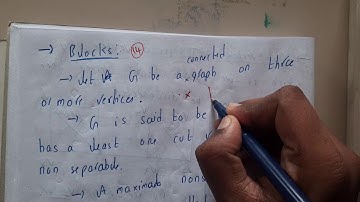 → Blocks: 14
connected
→ Let A G be a graph on three
or more vertices.
→ G is said to be
has a least one cut
non separable.
→ A maximal nons